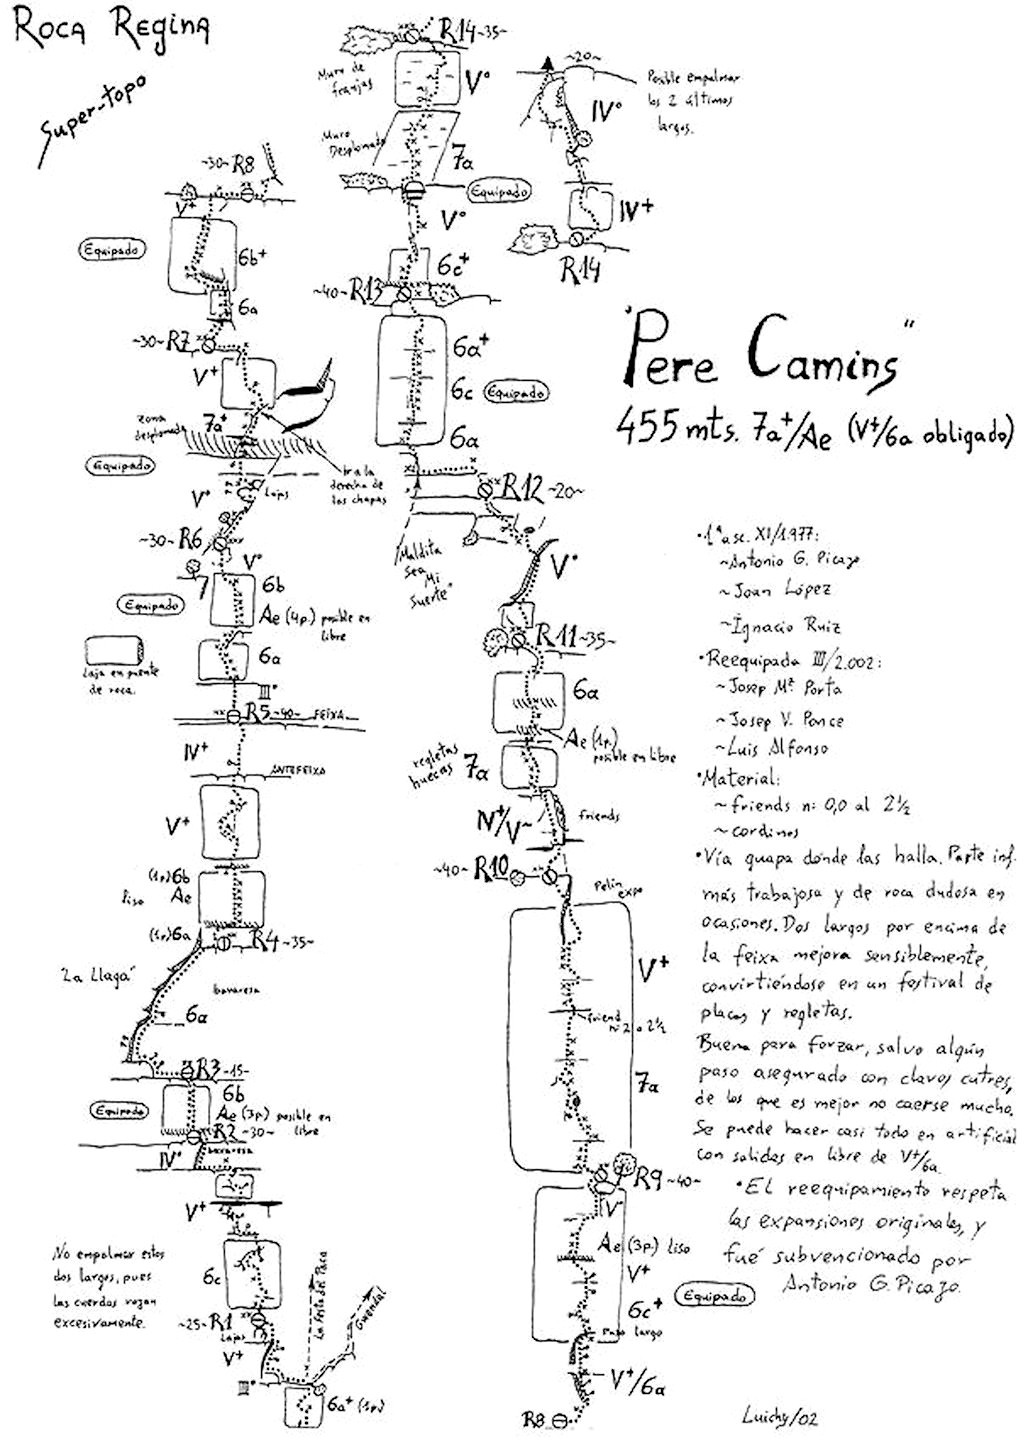 ROCA REGINA
Super-topo
~30~ R8
V+
Equipado
6b+
6a
~30~ R7
V+
zona
desplomada
7a+
Equipado
ir a la
derecha de
las chapas
V°
Lajas
~30~ R6
V°
6b
Equipado
Ae (4p.) posible en
libre
6a
Laja en puente
de roca.
III°
R5 ~40~ FEIXA
IV+
ANTEFEIXA
V+
(1p.) 6b
liso Ae
(1p.) 6a
R4 ~35~
"La Llaga"
bavaresa
6a
R3 ~15~
6b
Equipado
Ae (3p.) posible en
libre
R2 ~30~
IV° bavaresa
V+
No empalmar estos
dos largos, pues
las cuerdas rozan
excesivamente.
6c
~25~ R1
Lajas
V+
III°
La Festa del Paca
Gwendal
6a+ (1p.)
R14 ~35~
Muro de
franjas
V°
Muro
Desplomado
7a
Equipado
V°
6c+
~40~ R13
6a+
6c Equipado
6a
R12 ~20~
"Maldita
Sea
Mi
Suerte"
V°
R11 ~35~
6a
Ae (1p.)
posible en libre
regletas
huecas
7a
IV+/V-
friends
~40~ R10
Pelín
expo
V+
friend
nº 2 o 2½
7a
R9 ~40~
V-
Ae (3p.) liso
V+
6c+
Equipado
Paso largo
V+/6a
R8
~20~
Posible empalmar
los 2 últimos
largos.
IV°
IV+
R14
"Pere Camins"
455 mts. 7a+/Ae (V+/6a obligado)
•1ª asc. XI/1.977:
~Antonio G. Picazo
~Joan López
~Ignacio Ruiz
•Reequipada III/2.002:
~Josep Mª Porta
~Josep V. Ponce
~Luis Alfonso
•Material:
~friends n: 0,0 al 2½
~cordinos
•Vía guapa donde las halla. Parte inf.
más trabajosa y de roca dudosa en
ocasiones. Dos largos por encima de
la feixa mejora sensiblemente,
convirtiéndose en un festival de
placas y regletas.
Buena para forzar, salvo algún
paso asegurado con clavos cutres,
de los que es mejor no caerse mucho.
Se puede hacer casi todo en artificial
con salidas en libre de V+/6a.
•El reequipamiento respeta
las expansiones originales, y
fué subvencionado por
Antonio G. Picazo.
Luichy/02